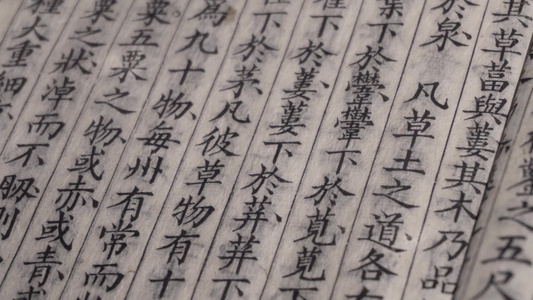 鑿之五尺
其草與蔞其木乃品
於泉 凡草土之道各
葉下於 下於莧莧下
下於蔞蔞下於荓荓下
下於茅凡彼草物有十
為九十物每州有常而
粟五粟之物或赤或青或
粟之狀淖而不肕剛
種大重細